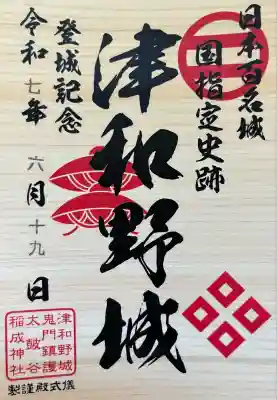 日本百名城
国指定史跡
津和野城
登城記念
令和七年 六月十九日
津和野城
鬼門鎮護
太皷谷
稲成神社
儀式殿謹製